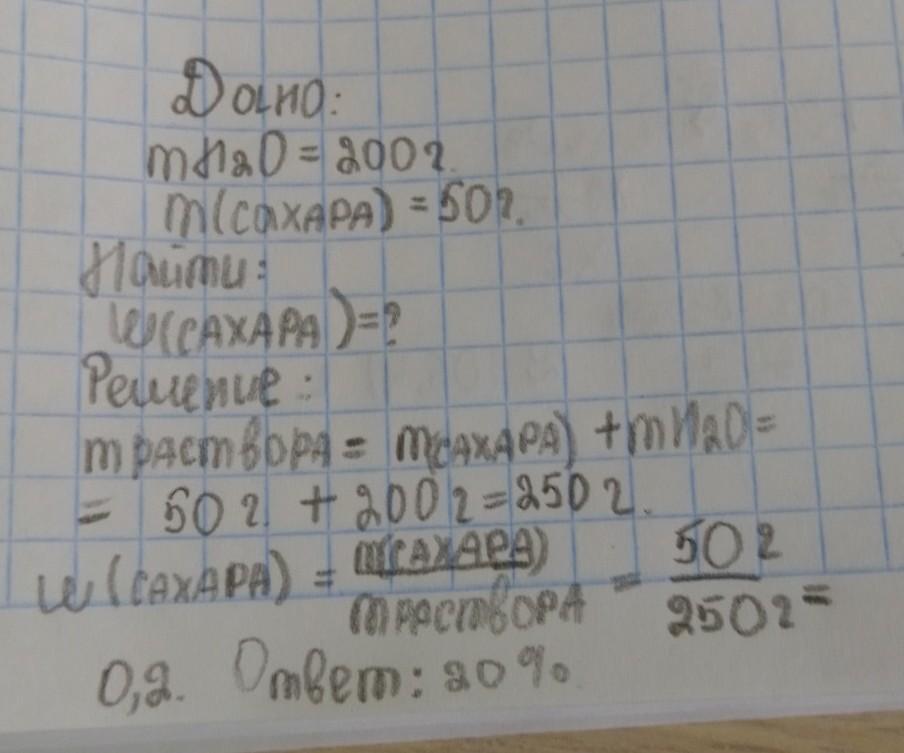 Дано:
mH2O = 200г.
m(сахара) = 50г.
Найти:
w(сахара) = ?
Решение:
m раствора = m(сахара) + mH2O =
= 50г. + 200г = 250г.
w(сахара) = m(сахара) / m раствора = 50г / 250г =
0,2. Ответ: 20%